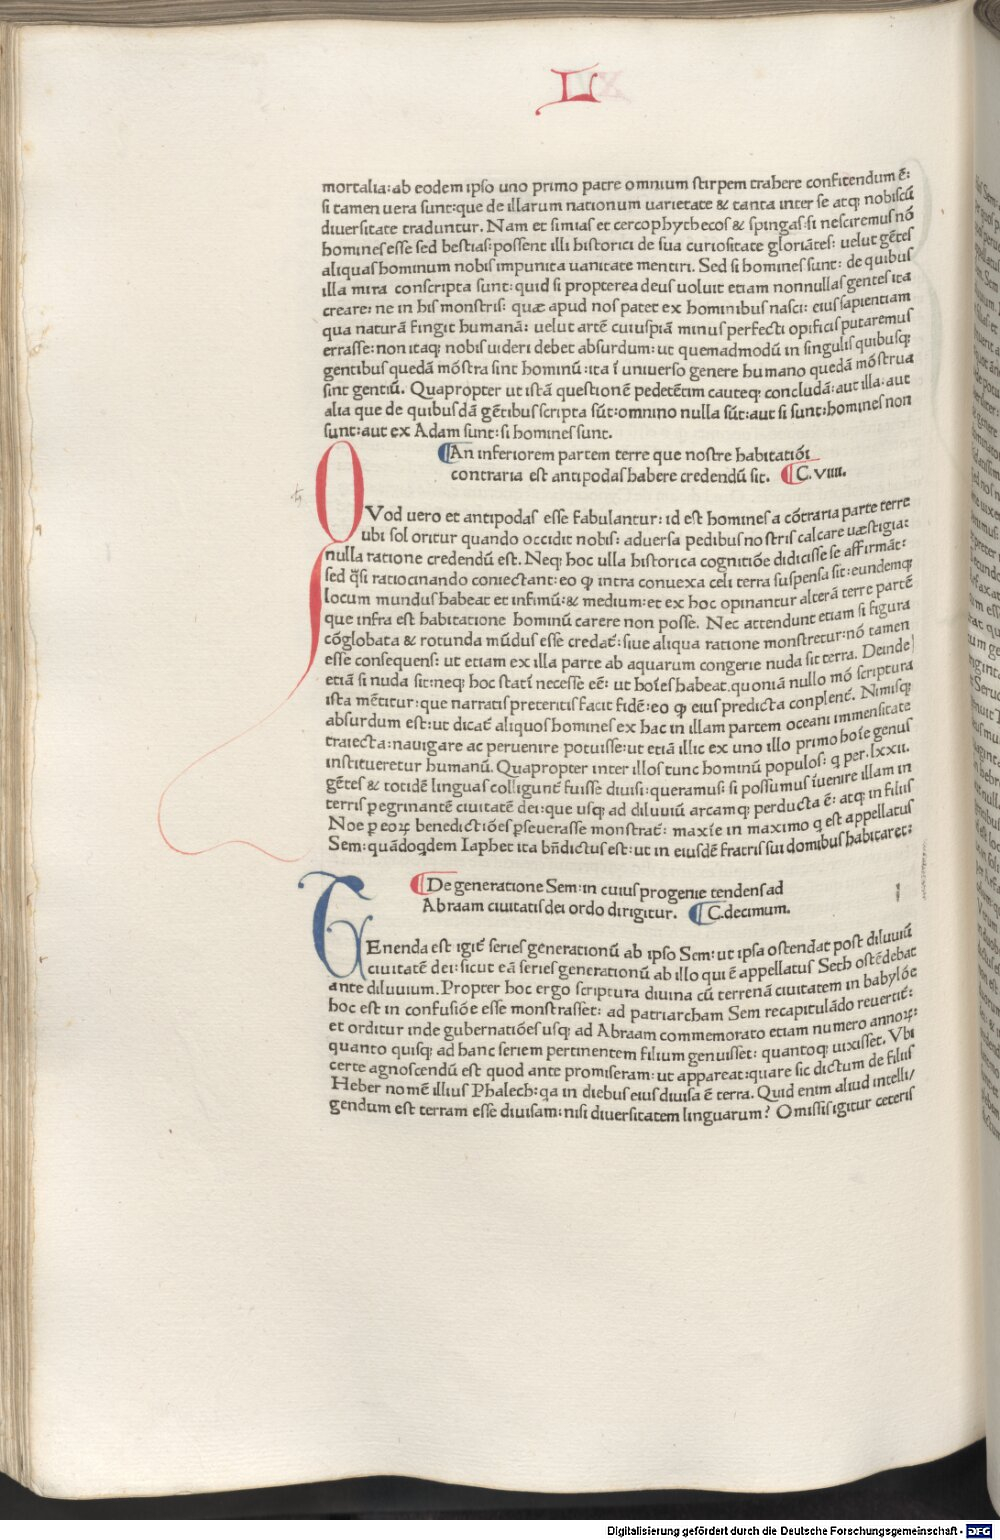 L
mortalia: ab eodem ipso uno primo patre omnium stirpem trahere confitendum ē:
si tamen uera sunt: que de illarum nationum uarietate & tanta inter se atq; nobiscū
diuersitate traduntur. Nam et simias et cercophythecos & spingas: si nesciremus nō
homines esse sed bestias: possent illi historici de sua curiositate gloriātes: uelut gētes
aliquas hominum nobis impunita uanitate mentiri. Sed si homines sunt: de quibus
illa mira conscripta sunt: quid si propterea deus uoluit etiam nonnullas gentes ita
creare: ne in his monstris: quæ apud nos patet ex hominibus nasci: eius sapientiam
qua naturā fingit humanā: uelut artē cuiuspiā minus perfecti opificis putaremus
errasse: non itaq; nobis uideri debet absurdum: ut quemadmodū in singulis quibusq;
gentibus quedā mōstra sint hominū: ita ī uniuerso genere humano quedā mōstrua
sint gentiū. Quapropter ut istā questionē pedetētim cauteq; concludā: aut illa: aut
alia que de quibusdā gētibus scripta sūt: omnino nulla sūt: aut si sunt: homines non
sunt: aut ex Adam sunt: si homines sunt.
¶An inferiorem partem terre que nostre habitatiōi
contraria est antipodas habere credendū sit. ¶C. VIIII.
QVod uero et antipodas esse fabulantur: id est homines a cōtraria parte terre
ubi sol oritur quando occidit nobis: aduersa pedibus nostris calcare uæstigia:
nulla ratione credendū est. Neq; hoc ulla historica cognitiōe didicisse se affirmāt:
sed q̄si ratiocinando coniectant: eo ꝙ intra conuexa celi terra suspensa sit: eundemq;
locum mundus habeat et infimū: & medium: et ex hoc opinantur alterā terre partē
que infra est habitatione hominū carere non posse. Nec attendunt etiam si figura
cōglobata & rotunda mūdus esse credat̄: siue aliqua ratione monstretur: nō tamen
esse consequens: ut etiam ex illa parte ab aquarum congerie nuda sit terra. Deinde
etiā si nuda sit: neq; hoc statī necesse eē: ut hoīes habeat. quoniā nullo mō scriptura
ista mētitur: que narratis preteritis facit fidē: eo ꝙ eius predicta conplent̄. Nimisq;
absurdum est: ut dicat̄ aliquos homines ex hac in illam partem oceani immensitate
traiecta: nauigare ac peruenire potuisse: ut etiā illic ex uno illo primo hoīe genus
institueretur humanū. Quapropter inter illos tunc hominū populos: q per. lxxii.
gētes & totidē linguas colligunt̄ fuisse diuisi: queramus: si possumus īuenire illam in
terris ꝑegrinantē ciuitatē dei: que usq; ad diluuiū arcamq; perducta ē: atq; in filiis
Noe ꝑ eoꝝ benedictiōes ꝑseuerasse monstrat̄: maxīe in maximo q est appellatus
Sem: quādoqdem Iaphet ita bn̄dictus est: ut in eiusdē fratris sui domibus habitaret:
¶De generatione Sem: in cuius progenie tendens ad
Abraam ciuitatis dei ordo dirigitur. ¶C. decimum.
TEnenda est igit̄ series generationū ab ipso Sem: ut ipsa ostendat post diluuiū
ciuitatē dei: sicut eā series generationū ab illo qui ē appellatus Seth ostēdebat
ante diluuium. Propter hoc ergo scriptura diuina cū terrenā ciuitatem in babylōe
hoc est in confusiōe esse monstrasset: ad patriarcham Sem recapitulādo reuertit̄:
et orditur inde gubernatiōes usq; ad Abraam commemorato etiam numero annoꝝ:
quanto quisq; ad hanc seriem pertinentem filium genuisset: quantoq; uixisset. Vbi
certe agnoscendū est quod ante promiseram: ut appareat: quare sic dictum de filiis
Heber nomē illius Phalech: qa in diebus eius diuisa ē terra. Quid enim aliud intelli/
gendum est terram esse diuisam: nisi diuersitatem linguarum? Omissis igitur ceteris
Digitalisierung gefördert durch die Deutsche Forschungsgemeinschaft - DFG